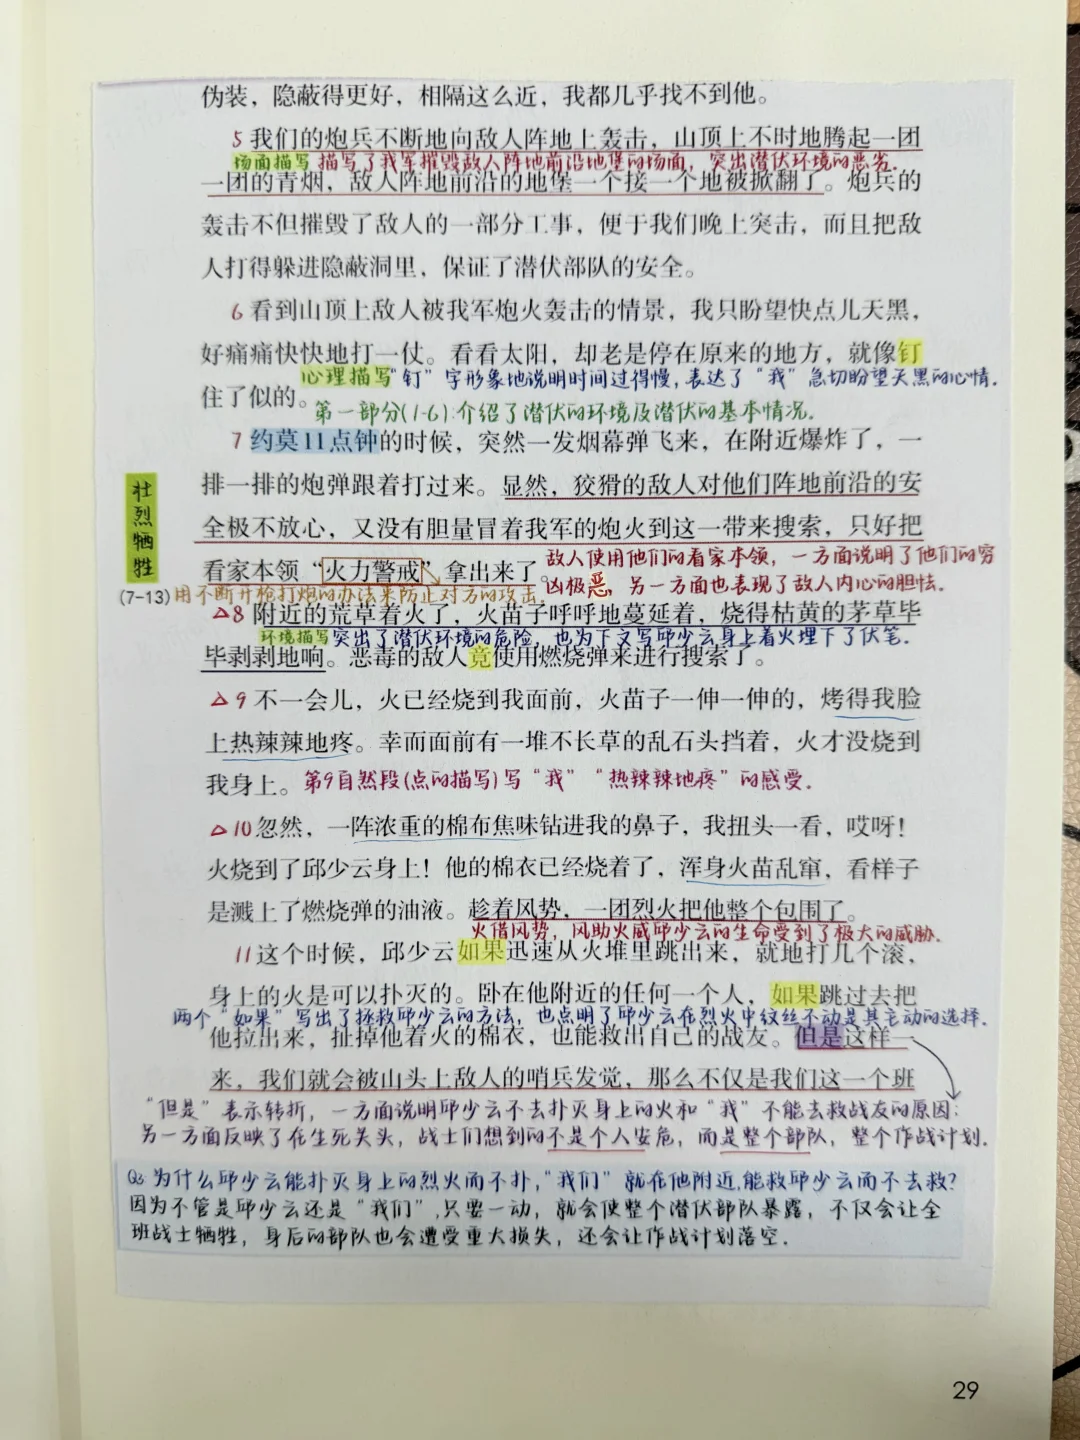 伪装，隐蔽得更好，相隔这么近，我都几乎找不到他。
5 我们的炮兵不断地向敌人阵地上轰击，山顶上不时地腾起一团
场面描写 描写了我军摧毁敌人阵地前沿地堡的场面，突出潜伏环境的恶劣.
一团的青烟，敌人阵地前沿的地堡一个接一个地被掀翻了。炮兵的
轰击不但摧毁了敌人的一部分工事，便于我们晚上突击，而且把敌
人打得躲进隐蔽洞里，保证了潜伏部队的安全。
6 看到山顶上敌人被我军炮火轰击的情景，我只盼望快点儿天黑，
好痛痛快快地打一仗。看看太阳，却老是停在原来的地方，就像钉
心理描写 “钉”字形象地说明时间过得慢，表达了“我”急切盼望天黑的心情.
住了似的。
第一部分(1-6):介绍了潜伏的环境及潜伏的基本情况.
7 约莫11点钟的时候，突然一发烟幕弹飞来，在附近爆炸了，一
排一排的炮弹跟着打过来。显然，狡猾的敌人对他们阵地前沿的安
全极不放心，又没有胆量冒着我军的炮火到这一带来搜索，只好把
壮烈牺牲
(7-13)
敌人使用他们的看家本领，一方面说明了他们的穷
看家本领“火力警戒”拿出来了。
凶极恶，另一方面也表现了敌人内心的胆怯.
用不断开枪打炮的办法来防止对方的攻击.
△8 附近的荒草着火了，火苗子呼呼地蔓延着，烧得枯黄的茅草毕
环境描写 突出了潜伏环境的危险，也为下文写邱少云身上着火埋下了伏笔.
毕剥剥地响。恶毒的敌人竟使用燃烧弹来进行搜索了。
△9 不一会儿，火已经烧到我面前，火苗子一伸一伸的，烤得我脸
上热辣辣地疼。幸而面前有一堆不长草的乱石头挡着，火才没烧到
我身上。 第9自然段(点的描写)写“我”“热辣辣地疼”的感受.
△10 忽然，一阵浓重的棉布焦味钻进我的鼻子，我扭头一看，哎呀！
火烧到了邱少云身上！他的棉衣已经烧着了，浑身火苗乱窜，看样子
是溅上了燃烧弹的油液。趁着风势，一团烈火把他整个包围了。
火借风势，风助火威邱少云的生命受到了极大的威胁.
11 这个时候，邱少云如果迅速从火堆里跳出来，就地打几个滚，
身上的火是可以扑灭的。卧在他附近的任何一个人，如果跳过去把
两个“如果”写出了拯救邱少云的方法，也点明了邱少云在烈火中纹丝不动是其主动的选择.
他拉出来，扯掉他着火的棉衣，也能救出自己的战友。但是这样一
来，我们就会被山头上敌人的哨兵发觉，那么不仅是我们这一个班
“但是”表示转折，一方面说明邱少云不去扑灭身上的火和“我”不能去救战友的原因；
另一方面反映了在生死关头，战士们想到的不是个人安危，而是整个部队，整个作战计划.
Q: 为什么邱少云能扑灭身上的烈火而不扑，“我们”就在他附近,能救邱少云而不去救？
因为不管是邱少云还是“我们”,只要一动，就会使整个潜伏部队暴露，不仅会让全
班战士牺牲，身后的部队也会遭受重大损失，还会让作战计划落空.
29